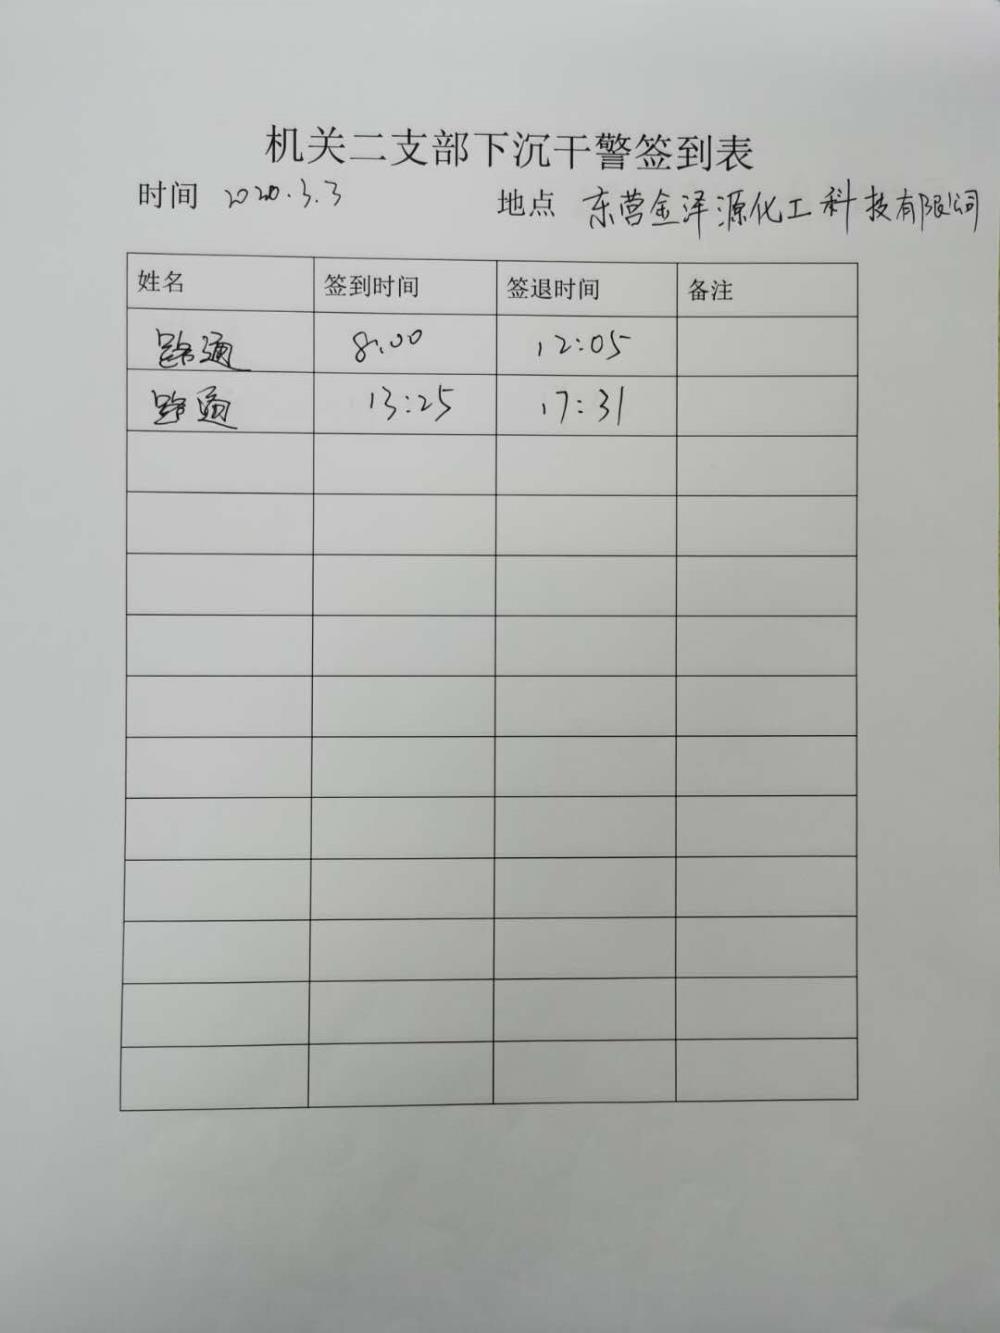 机关二支部下沉干警签到表
时间 2020.3.3 地点 东营金泽源化工科技有限公司
姓名 签到时间 签退时间 备注
路通 8:00 12:05
路通 13:25 17:31